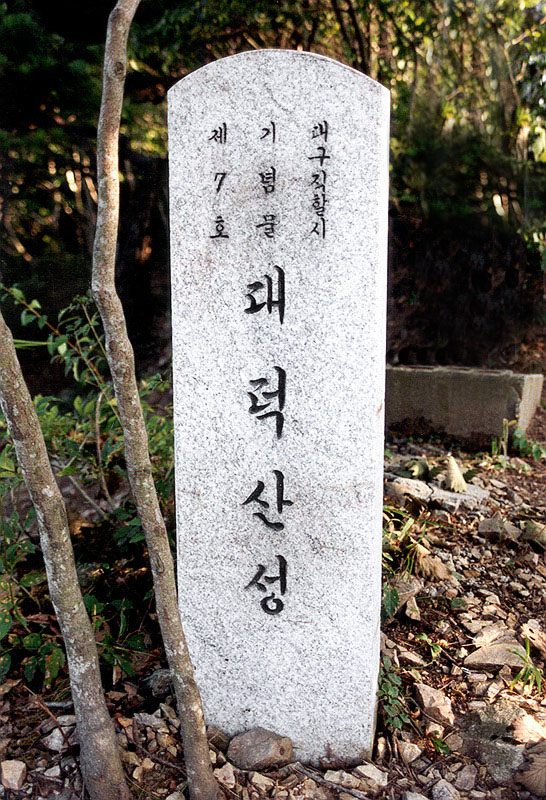 대구직할시
기념물
제7호
대덕산성